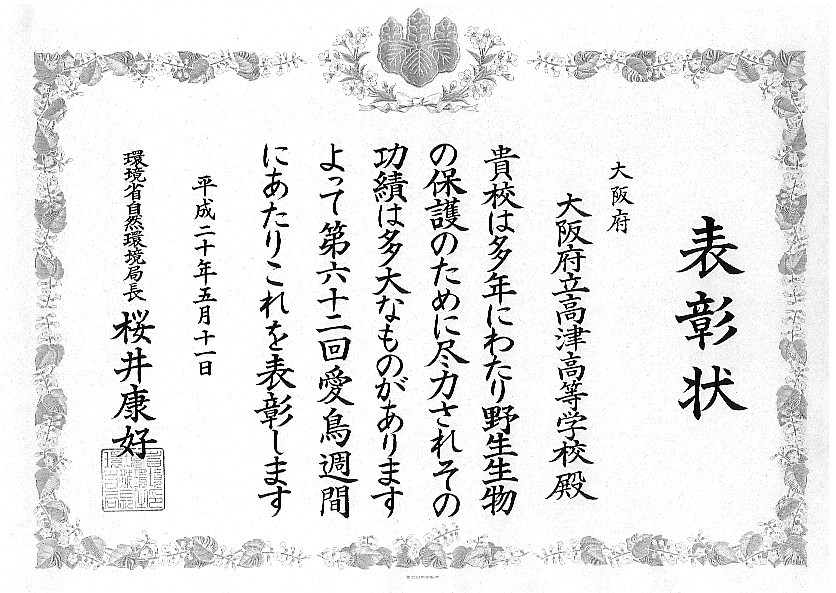 表彰状
大阪府
大阪府立高津高等学校殿
貴校は多年にわたり野生生物
の保護のために尽力されその
功績は多大なものがあります
よって第六十二回愛鳥週間
にあたりこれを表彰します
平成二十年五月十一日
環境省自然環境局長 桜井康好